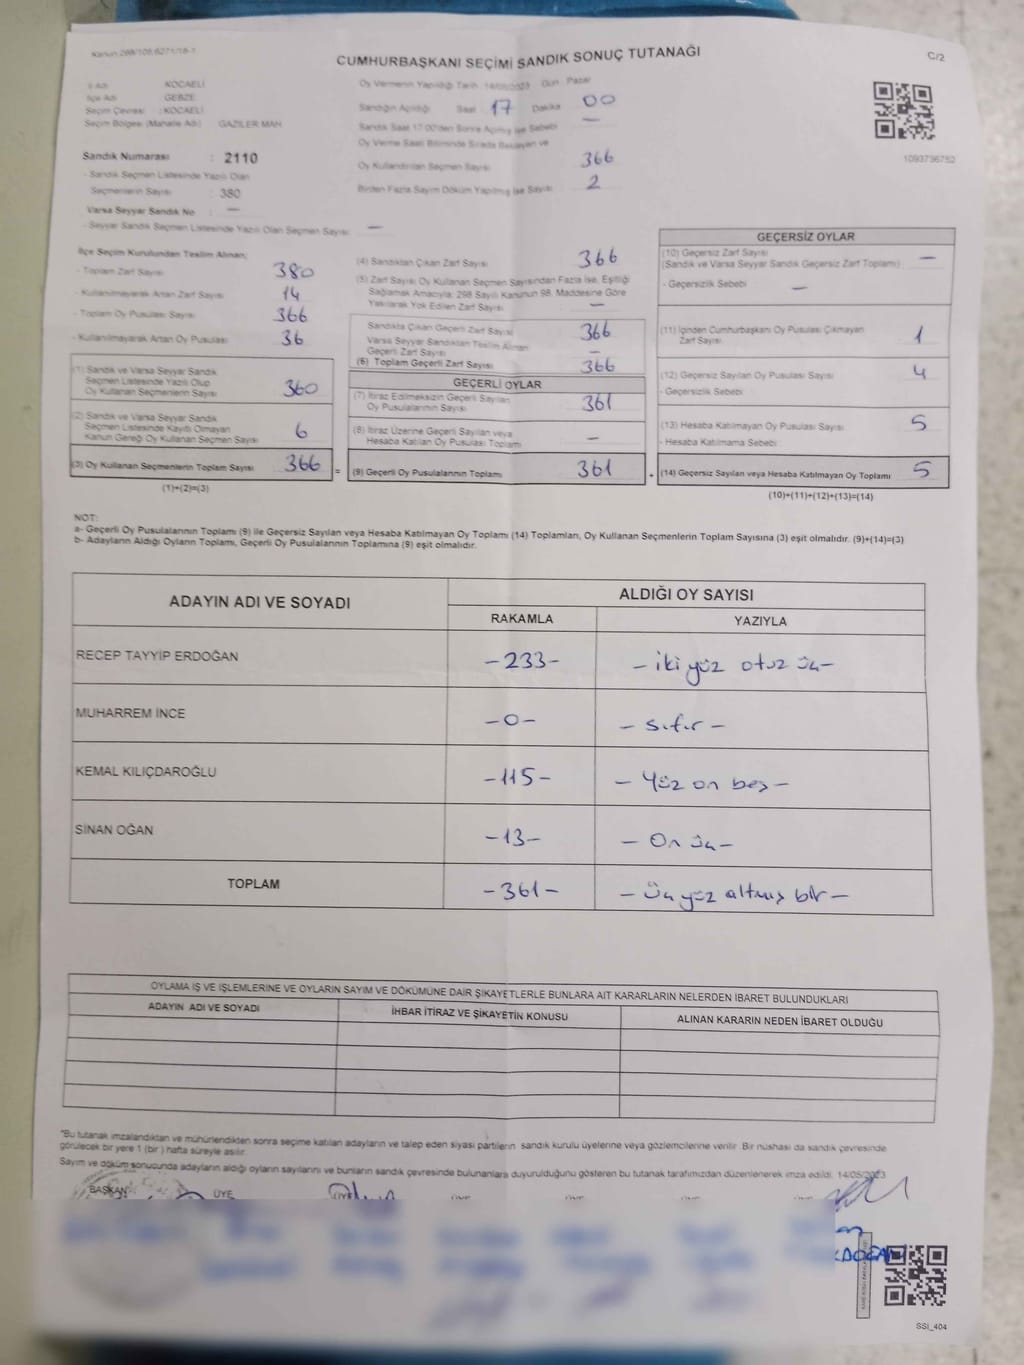 Kanun 298/105 6271/18-1
CUMHURBAŞKANI SEÇİMİ SANDIK SONUÇ TUTANAĞI
C/2
İl Adı KOCAELİ
İlçe Adı GEBZE
Seçim Çevresi : KOCAELİ
Seçim Bölgesi (Mahalle Adı) GAZİLER MAH
Sandık Numarası : 2110
- Sandık Seçmen Listesinde Yazılı Olan
Seçmenlerin Sayısı : 380
Varsa Seyyar Sandık No : —
- Seyyar Sandık Seçmen Listesinde Yazılı Olan Seçmen Sayısı —
Oy Vermenin Yapıldığı Tarih 14/05/2023 Gün Pazar
Sandığın Açıldığı Saat 17 Dakika 00
Sandık Saat 17:00'den Sonra Açılmış İse Sebebi —
Oy Verme Saati Bitiminde Sırada Bekleyen ve
Oy Kullandırılan Seçmen Sayısı 366
Birden Fazla Sayım Döküm Yapılmış İse Sayısı 2
1093736752
İlçe Seçim Kurulundan Teslim Alınan;
- Toplam Zarf Sayısı 380
- Kullanılmayarak Artan Zarf Sayısı 14
- Toplam Oy Pusulası Sayısı 366
- Kullanılmayarak Artan Oy Pusulası 36
(1) Sandık ve Varsa Seyyar Sandık
Seçmen Listesinde Yazılı Olup
Oy Kullanan Seçmenlerin Sayısı 360
(2) Sandık ve Varsa Seyyar Sandık
Seçmen Listesinde Kayıtlı Olmayan
Kanun Gereği Oy Kullanan Seçmen Sayısı 6
(3) Oy Kullanan Seçmenlerin Toplam Sayısı 366 =
(1)+(2)=(3)
(4) Sandıktan Çıkan Zarf Sayısı 366
(5) Zarf Sayısı Oy Kullanan Seçmen Sayısından Fazla İse, Eşitliği
Sağlamak Amacıyla; 298 Sayılı Kanunun 98. Maddesine Göre
Yakılarak Yok Edilen Zarf Sayısı —
Sandıkta Çıkan Geçerli Zarf Sayısı 366
Varsa Seyyar Sandıktan Teslim Alınan
Geçerli Zarf Sayısı —
(6) Toplam Geçerli Zarf Sayısı 366
GEÇERLİ OYLAR
(7) İtiraz Edilmeksizin Geçerli Sayılan
Oy Pusulalarının Sayısı 361
(8) İtiraz Üzerine Geçerli Sayılan veya
Hesaba Katılan Oy Pusulası Toplamı —
(9) Geçerli Oy Pusulalarının Toplamı 361 +
GEÇERSİZ OYLAR
(10) Geçersiz Zarf Sayısı
(Sandık ve Varsa Seyyar Sandık Geçersiz Zarf Toplamı) —
- Geçersizlik Sebebi —
(11) İçinden Cumhurbaşkanı Oy Pusulası Çıkmayan
Zarf Sayısı 1
(12) Geçersiz Sayılan Oy Pusulası Sayısı 4
- Geçersizlik Sebebi
(13) Hesaba Katılmayan Oy Pusulası Sayısı 5
- Hesaba Katılmama Sebebi
(14) Geçersiz Sayılan veya Hesaba Katılmayan Oy Toplamı 5
(10)+(11)+(12)+(13)=(14)
NOT:
a- Geçerli Oy Pusulalarının Toplamı (9) ile Geçersiz Sayılan veya Hesaba Katılmayan Oy Toplamı (14) Toplamları, Oy Kullanan Seçmenlerin Toplam Sayısına (3) eşit olmalıdır. (9)+(14)=(3)
b- Adayların Aldığı Oyların Toplamı, Geçerli Oy Pusulalarının Toplamına (9) eşit olmalıdır.
ADAYIN ADI VE SOYADI
ALDIĞI OY SAYISI
RAKAMLA YAZIYLA
RECEP TAYYİP ERDOĞAN -233- - iki yüz otuz üç -
MUHARREM İNCE -0- - sıfır -
KEMAL KILIÇDAROĞLU -115- - Yüz on beş -
SİNAN OĞAN -13- - On üç -
TOPLAM -361- - Üç yüz altmış bir -
OYLAMA İŞ VE İŞLEMLERİNE VE OYLARIN SAYIM VE DÖKÜMÜNE DAİR ŞİKAYETLERLE BUNLARA AİT KARARLARIN NELERDEN İBARET BULUNDUKLARI
ADAYIN ADI VE SOYADI İHBAR İTİRAZ VE ŞİKAYETİN KONUSU ALINAN KARARIN NEDEN İBARET OLDUĞU
"Bu tutanak imzalandıktan ve mühürlendikten sonra seçime katılan adayların ve talep eden siyasi partilerin sandık kurulu üyelerine veya gözlemcilerine verilir. Bir nüshası da sandık çevresinde
görülecek bir yere 1 (bir ) hafta süreyle asılır.
Sayım ve döküm sonucunda adayların aldığı oyların sayılarını ve bunların sandık çevresinde bulunanlara duyurulduğunu gösteren bu tutanak tarafımızdan düzenlenerek imza edildi. 14/05/2023
BAŞKAN ÜYE
SSİ_404